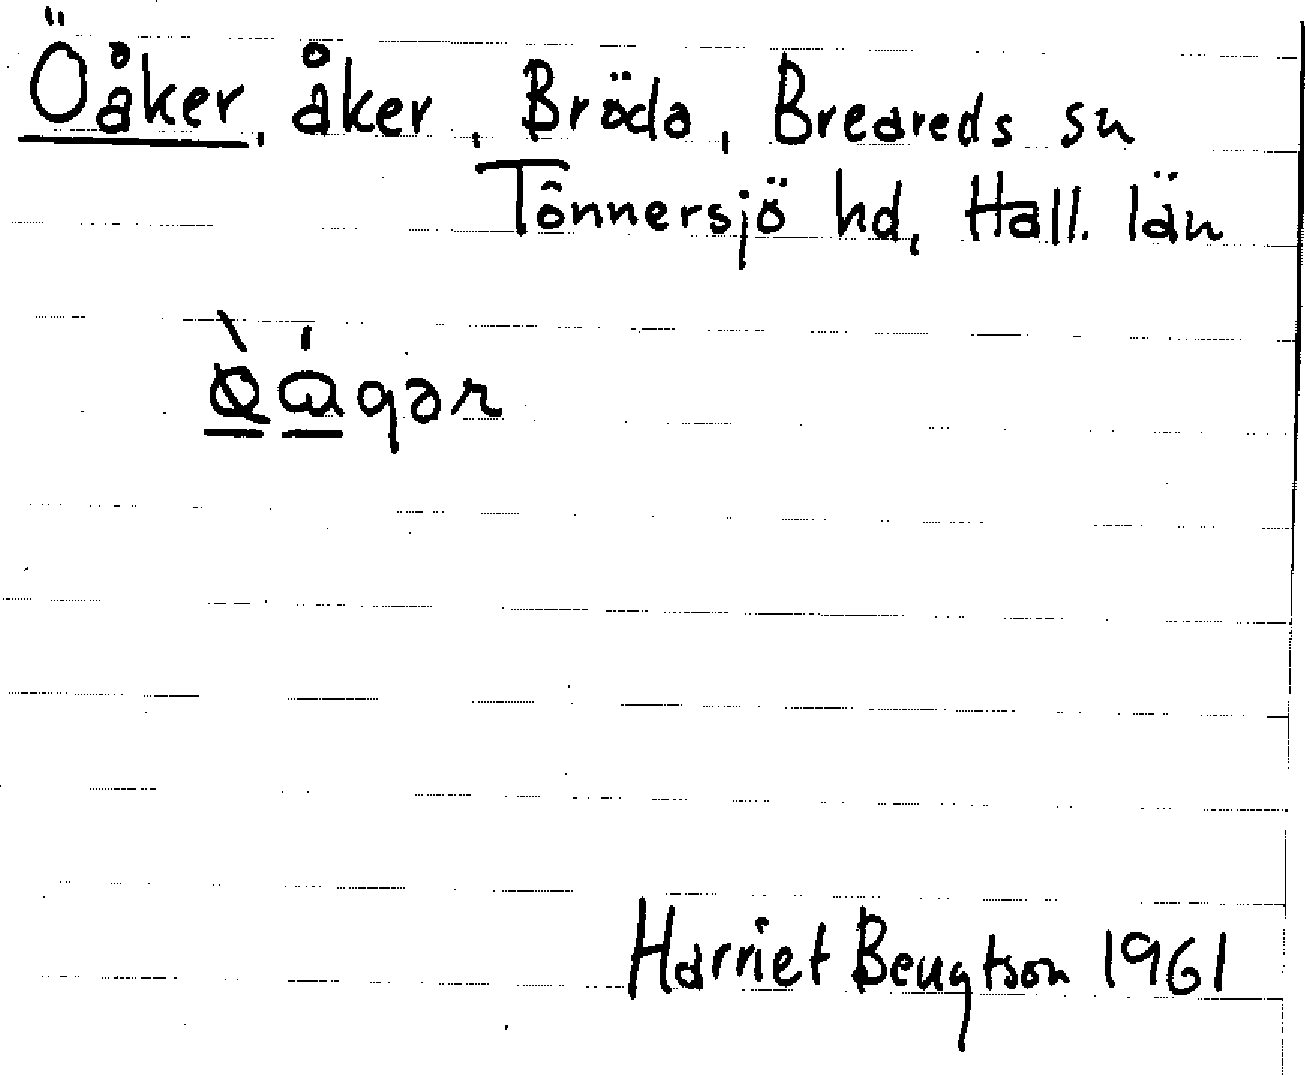 Öåker, åker, Bröda, Breareds sn
Tönnersjö hd, Hall. län
Harriet Bengtson 1961